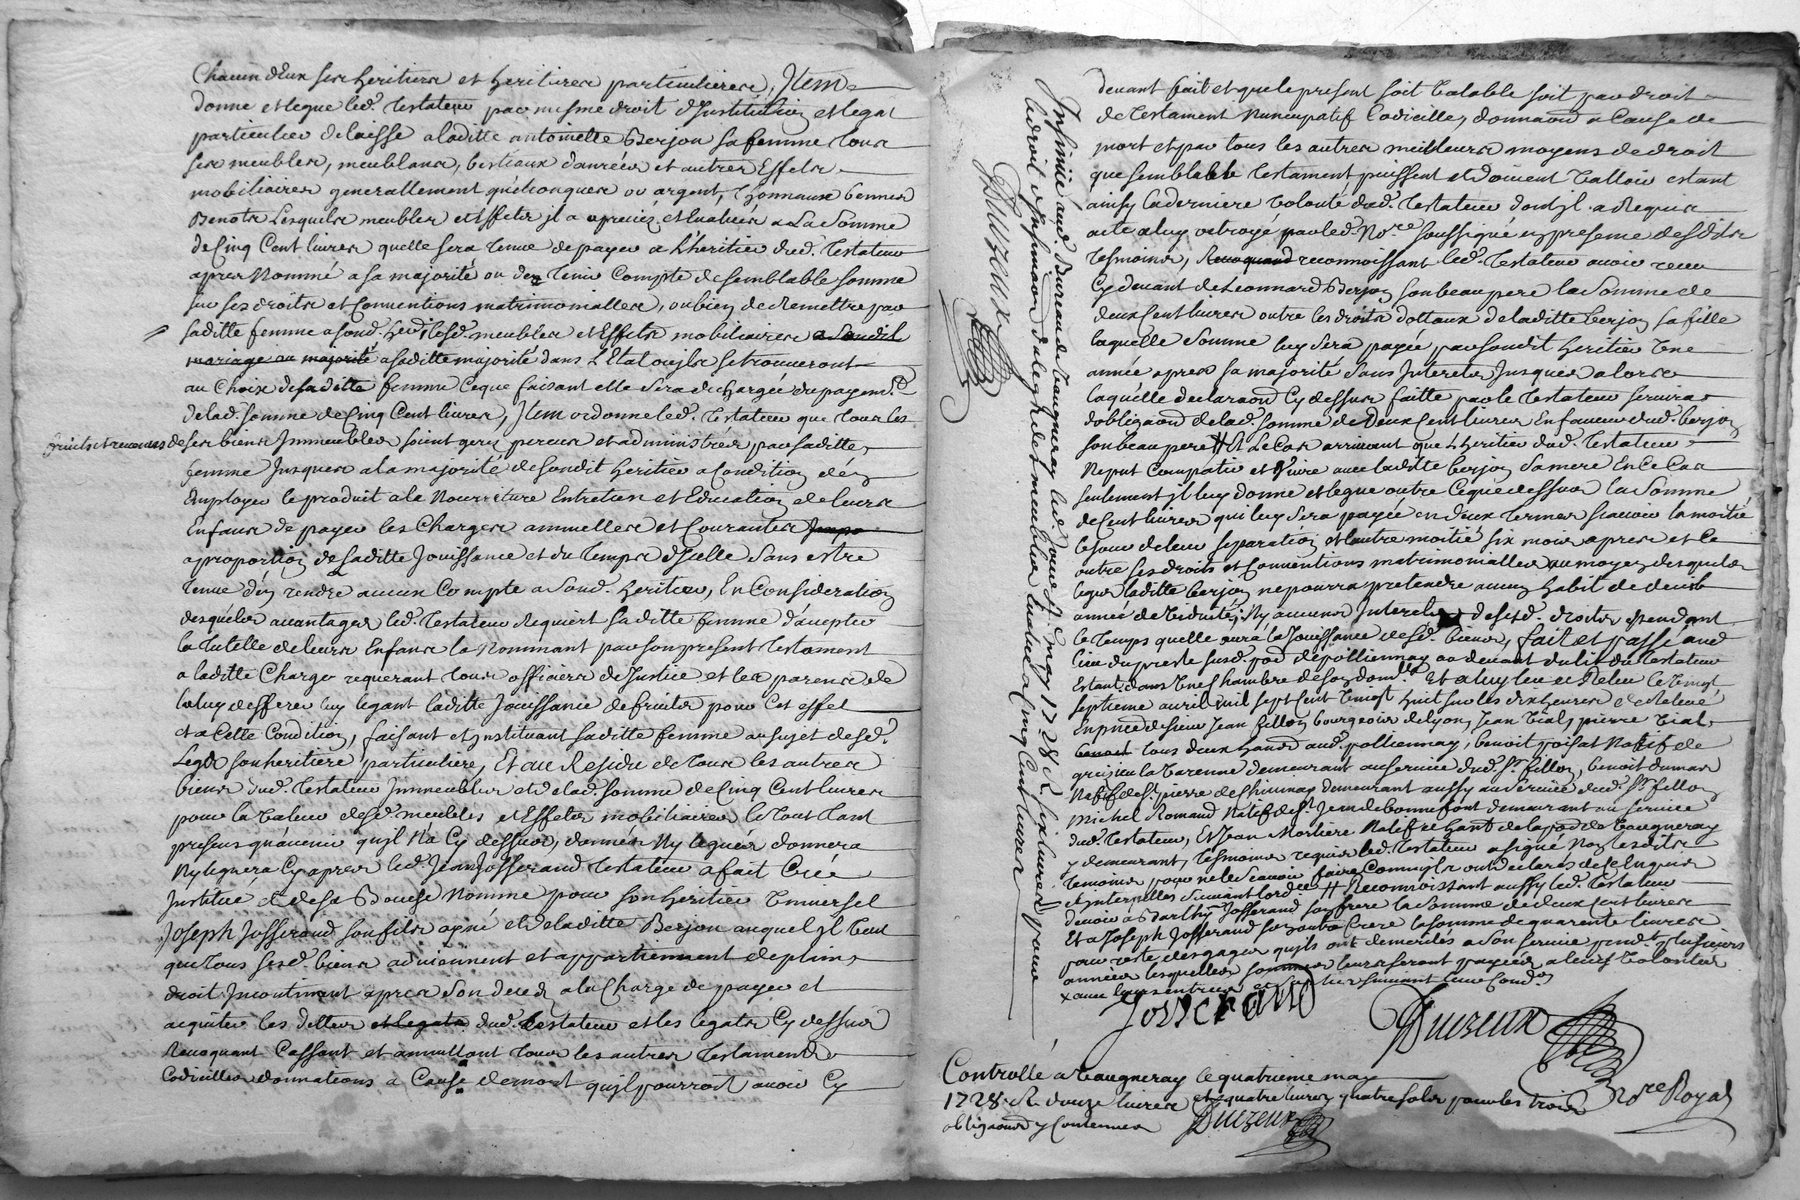 Chacun d'Eux ses heritiers et heritieres particulieres, Item
donne et legue led. Testateur par mesme droit d'Institution et legat
particulier delaisse a laditte antoinette Berjon sa femme tous
ses meubles, meublans, bestiaux danrées et autres Effets
mobiliaires generallement quelconques or argent, Thonnaux bennes
Benots Lesquels meubles et Effets il a apreciés et Evalués a La Somme
de Cinq Cent livres quelle sera tenue de payer a L'heritier dud. Testateur
apres Nommé a sa majorité ou d'en tenir Compte de semblable somme
sur ses droits et Conventions matrimonialles, ou bien de Remettre par
saditte femme a sond. her. lesd. meubles et Effets mobiliaires a Sondit
mariage ou majorité a saditte majorité dans L'Etat ou ils se trouveront
au Choix de saditte femme Ce que faisant elle sera dechargée du payem.t
de lad. somme de Cinq Cent livres, Item ordonne led. Testateur que tous les
fruits et revenus de ses biens Immeubles soient geris percus et administrés par saditte
femme Jusques a la majorité de sondit heritier a Condition d'en
Employer le produit a la Nourriture Entretien et Education de leurs
Enfans de payer les Charges annuelles et Courantes
a proportion de saditte Jouissance et du Temps d'Icelle Sans estre
tenue d'en rendre aucun Compte a Sond. heritier, En Consideration
desquels avantages led. Testateur Requiert saditte femme d'accepter
la Tutelle de leurs Enfans la Nommant par son present Testament
a laditte Charge requerant tous officiers de Justice et les parens de
la luy defferer luy legant laditte Jouissance de fruits pour Cet effet
et a Cette Condition, faisant et Instituant saditte femme au sujet desd.
Legs son heritiere particuliere, Et au Residu de tous les autres
biens dud. Testateur Immeubles et de lad. somme de Cinq Cent livres
pour la valeur desd. meubles et Effets mobiliaires le tout tant
presens qu'avenir qu'il N'a Cy dessus donnés Ny legués donnera
Ny leguera Cy apres led. Jean Josserand Testateur a fait Créé
Institué et de sa Bouche Nommé pour son heritier Universel
Joseph Josserand son fils ayné et de laditte Berjon auquel il veut
que tous sesd. biens adviennent et appartiennent de plein
droit Incontinent apres Son deces a la Charge de payer et
acquiter les dettes et legats dud. testateur et les legats Cy dessus
Revoquant Cassant et annullant tous les autres Testaments
Codicilles donnations a Cause de mort qu'il pourroit avoir Cy
devant fait et que le present soit valable soit par droit
de Testament Nuncupatif Codicille, donnaon a Cause de
mort et par tous les autres meilleurs moyens de droit
que semblable testament puissent et doivent valloir estant
ainsy la derniere volonté dud. Testateur dont il a Requis
acte a luy octroyé par led. No.re soussigné en presence desdits
tesmoins, Revoquand reconnoissant led. Testateur avoir receu
Cy devant de Leonnard Berjon son beau pere la Somme de
deux Cent livres outre les droits dottaux de laditte berjon sa fille
laquelle somme luy sera payée par sondit heritier Une
année apres sa majorité Sans Interets Jusques alors
laquelle declaraon Cy dessus faitte par le Testateur servira
d'obligaon de lad. somme de Deux Cent livres En faveur dud. berjon
son beau pere # Et le Cas arrivant que L'heritier dud. Testateur
Ne put Compatir et Vivre avec laditte berjon Sa mere En Ce Cas
seulement il luy donne et legue outre Ce que dessus la Somme
de Cent livres qui luy Sera payée en deux termes scavoir la moitié
le jour de leur separation et l'autre moitié six mois apres et Ce
outre ses droits et Conventions matrimonialles au moyen desquels
legs laditte berjon ne pourra pretendre aucun habit de deuil
année de viduité, Ny aucuns Interets desd. droits pendant
le Temps quelle aura la Jouissance desd. biens, fait et passé aud
lieu du preste susd. par. de pollionnay au devant du lit du testateur
Estant dans Une Chambre de son dom.lle Et a luy leu et Releu le Vingt
septieme avril Mil Sept Cent Vingt huit sur les dix heures
En pnce de sieur Jean fillon bourgeois de Lyon, Jean Vial, pierre Vial
tous deux habts aud. pollionnay, benoit poisat Natif de
grizieu la Varenne demeurant au service dud. Sr fillon, benoit dumas
Natif de St. pierre de demeurant aussy au service dud. Sr fillon
Michel Romand Natif de St Jean de bonnefont demeurant au service
dud. Testateur, Et Jean Mortiere Natif et habt de la par. de Vaugneray
y demeurant, tesmoins requis led. Testateur a signé Non lesdits
temoins pour ne le scavoir faire Comme ils ont declarés de Ce Enquis
et Interpellés Suivant lord.ce # Reconnoissant aussy led. Testateur
devoir a Barthy. Josserand son frere la Somme de deux Cent livres
Et a Joseph Josserand son autre frere la somme de quarante livres
pour reste des gages qu'ils ont demerités a Son service pend.t plusieurs
années lesquelles sommes leurs seront payées a leurs volontés
Josserand
Duzeux
No.re Royal
Controllé a Vaugneray le quatrieme may
1728 R douze livres et quatre livres quatre sols pour les trois
obligaons y Contenues Duzeux
Insinué aud. Bureau de Vaugneray led. jour 4. may 1728 R six livres pour
le droit d'Insinuaon du legs des meubles Evalués a Cinq Cent livres
Duzeux